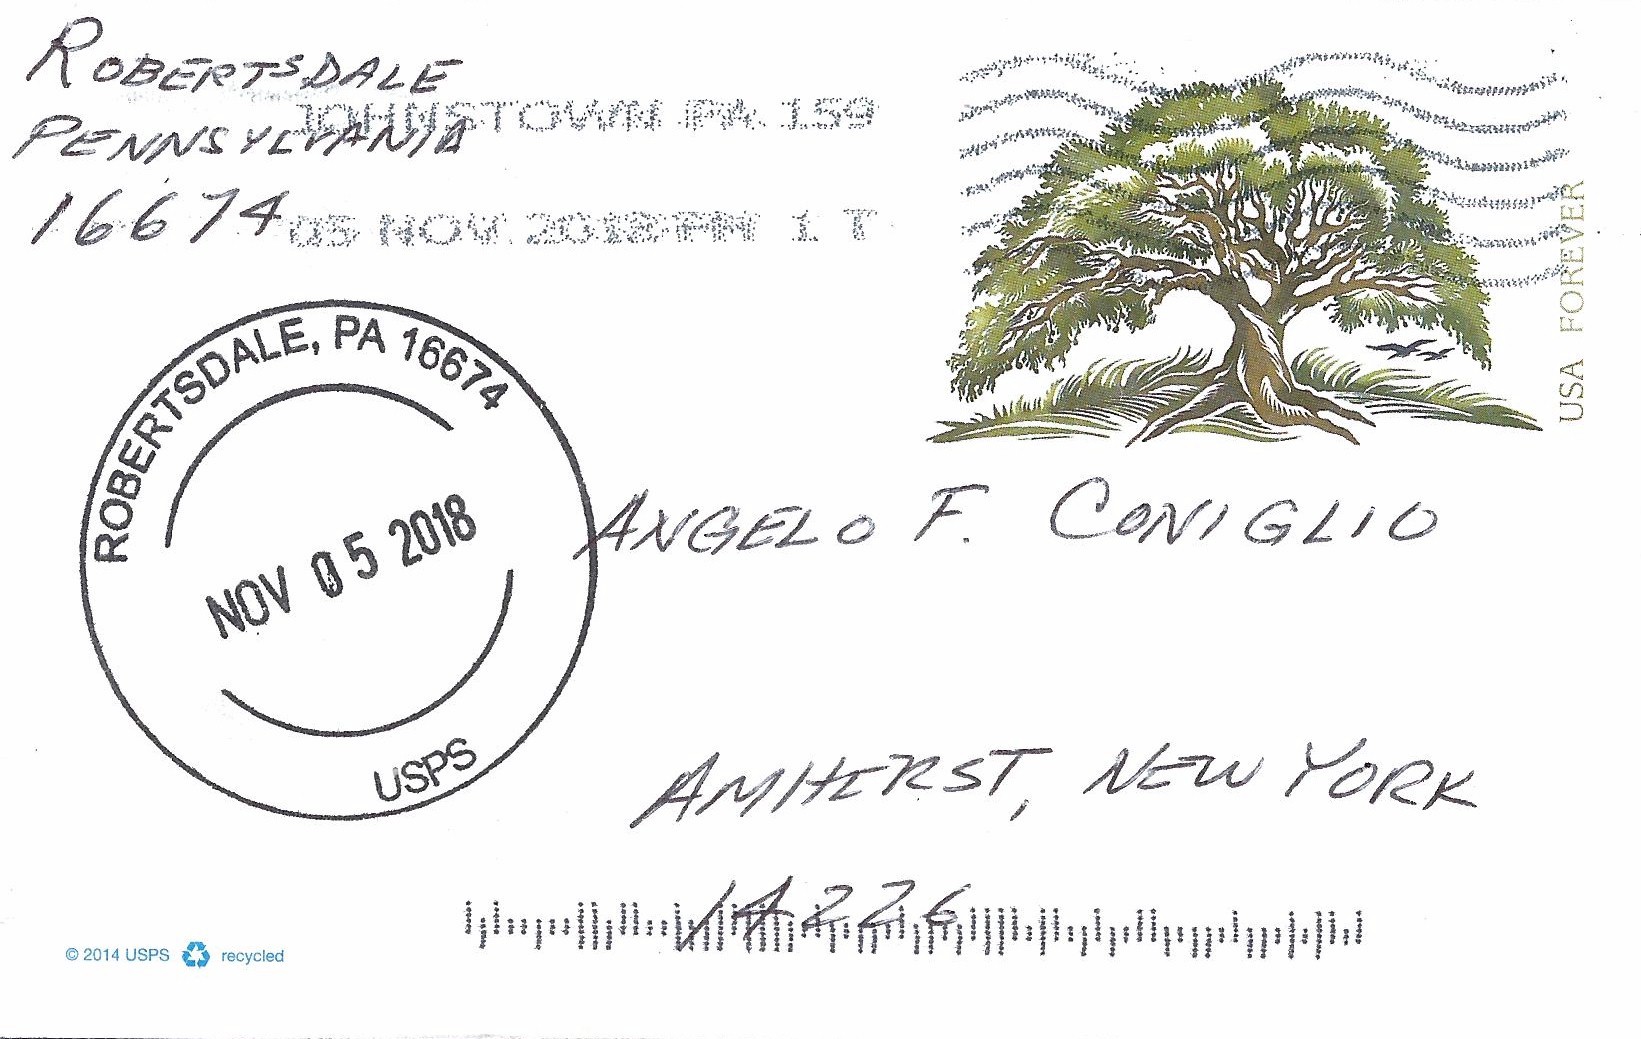 ROBERTSDALE
PENNSYLVANIA
16674
JOHNSTOWN PA 159
05 NOV 2018 PM 1 T
USA FOREVER
ROBERTSDALE, PA 16674
NOV 05 2018
USPS
ANGELO F. CONIGLIO
AMHERST, NEW YORK
14226
© 2014 USPS recycled